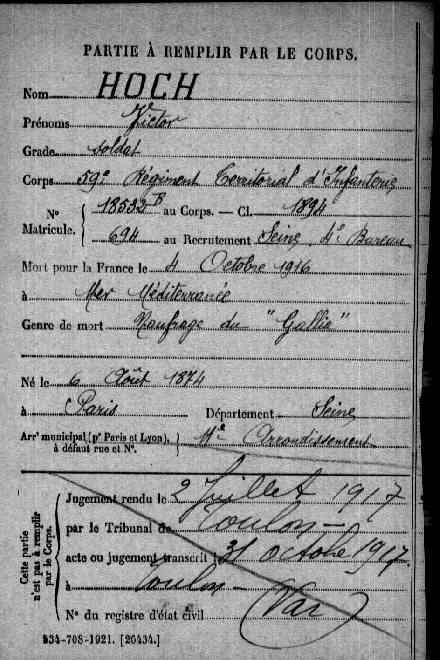 PARTIE À REMPLIR PAR LE CORPS.
Nom HOCH
Prénoms Victor
Grade soldat
Corps 59e Régiment Territorial d'Infanterie
N° Matricule. { 18522 B au Corps. — Cl. 1894
694 au Recrutement Seine 4e Bureau
Mort pour la France le 4 Octobre 1916
à Mer Méditerranée
Genre de mort Naufrage du "Gallia"
Né le 6 Août 1874
à Paris Département Seine
Arrt municipal (pr Paris et Lyon), à défaut rue et N°. } 11e Arrondissement
Cette partie n'est pas à remplir par le Corps.
Jugement rendu le 2 Juillet 1917
par le Tribunal de Toulon
acte ou jugement transcrit le 31 octobre 1917.
à Toulon — (Var)
N° du registre d'état civil
534-708-1921. [26434.]